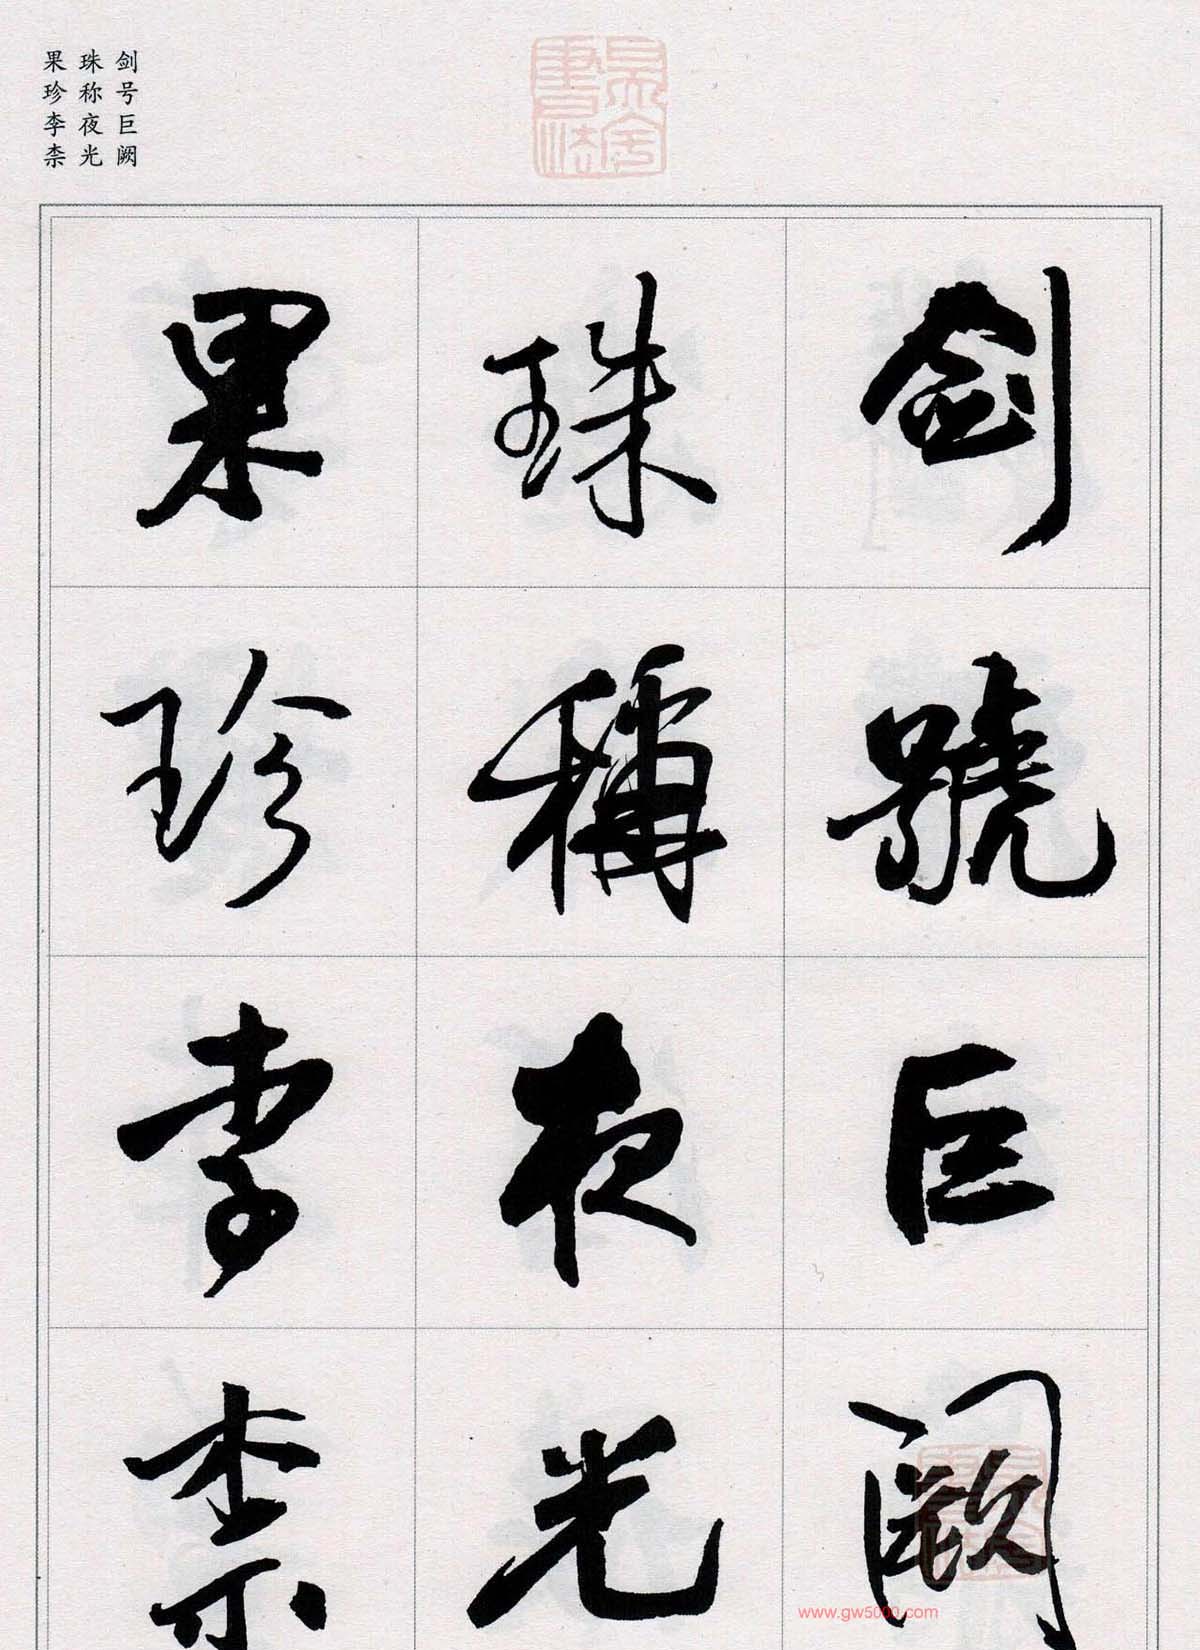 剑号巨阙
珠称夜光
果珍李柰
剑號巨阙
珠稱夜光
果珍李柰
www.gw5000.com